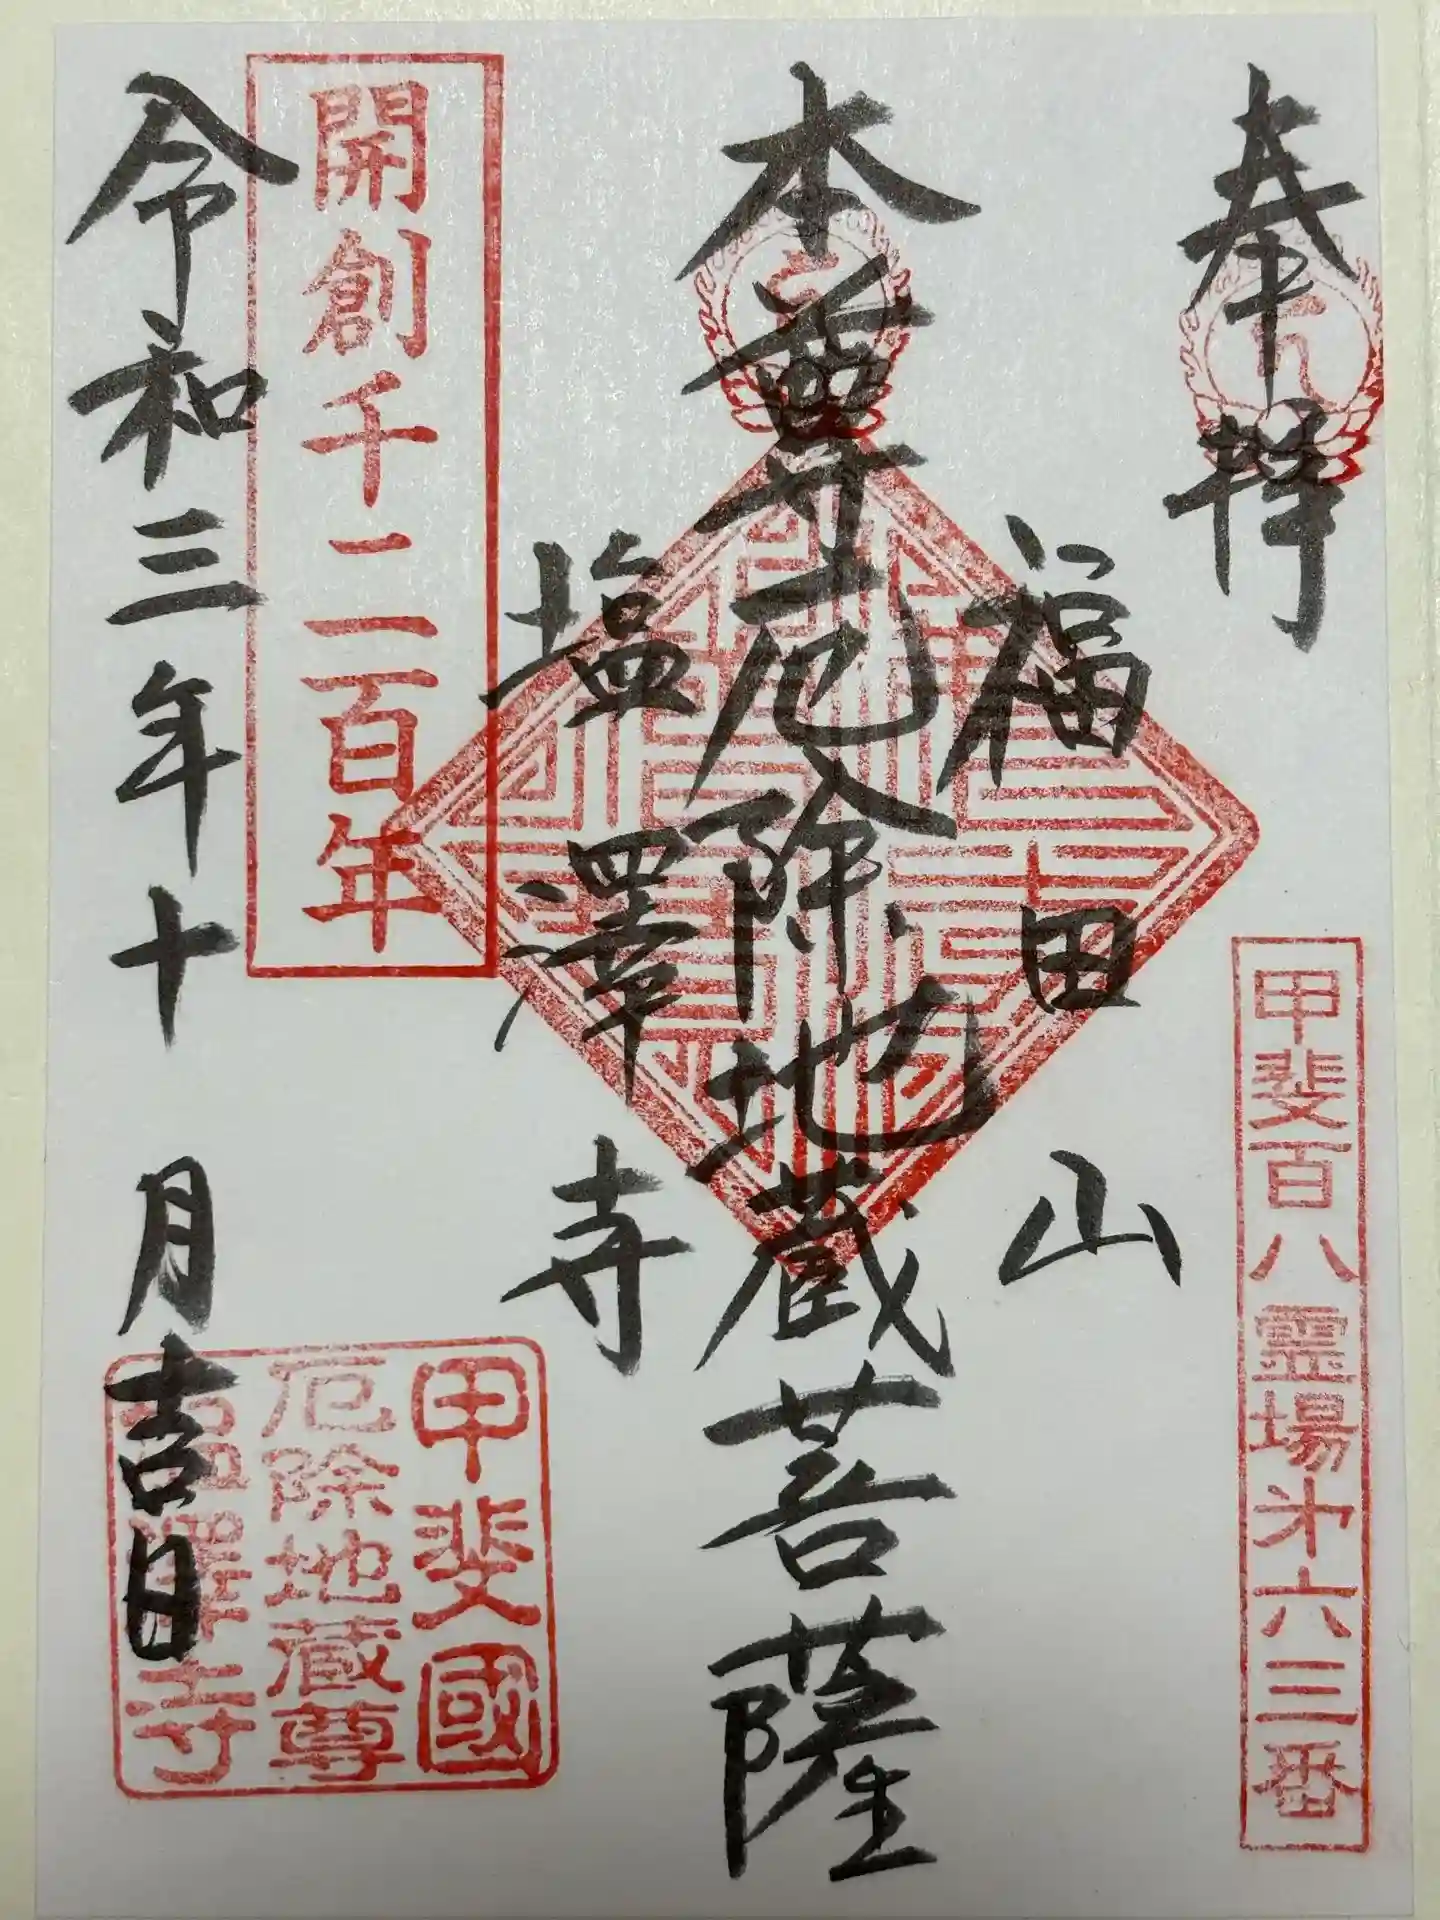 奉拝
甲斐百八霊場㐧六三番
福田山
本尊厄除地蔵菩薩
塩澤寺
開創千二百年
令和三年十月吉日
甲斐國
厄除地蔵尊
塩澤寺